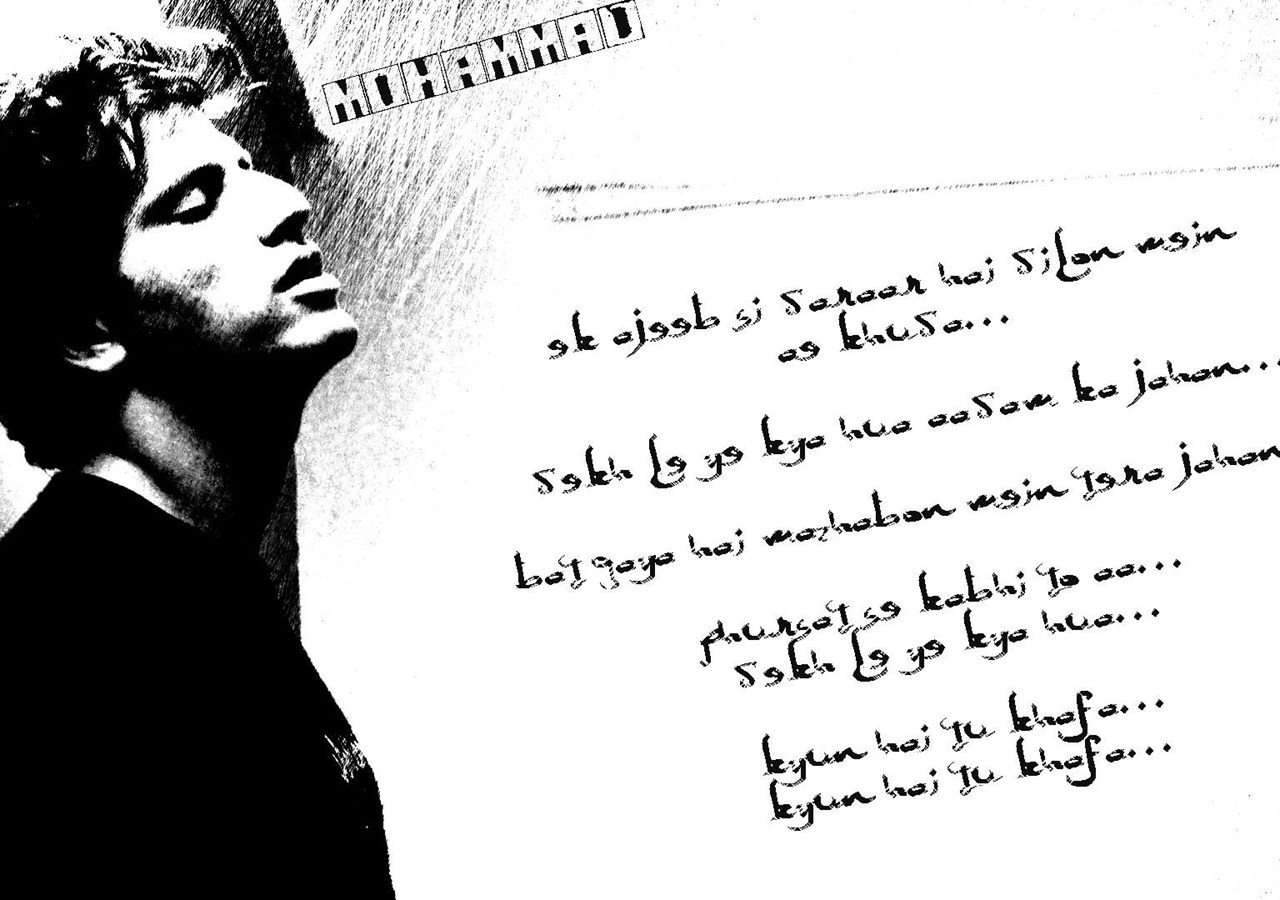 MOHAMMAD
ek ajeeb si daraar hai dilon mein
ae khuda...
dekh le ye kya hua aadam ka jahan...
bat gaya hai mazhabon mein tera jahan
phursat se kabhi to aa...
dekh le ye kya hua...
kyun hai tu khafa...
kyun hai tu khafa...